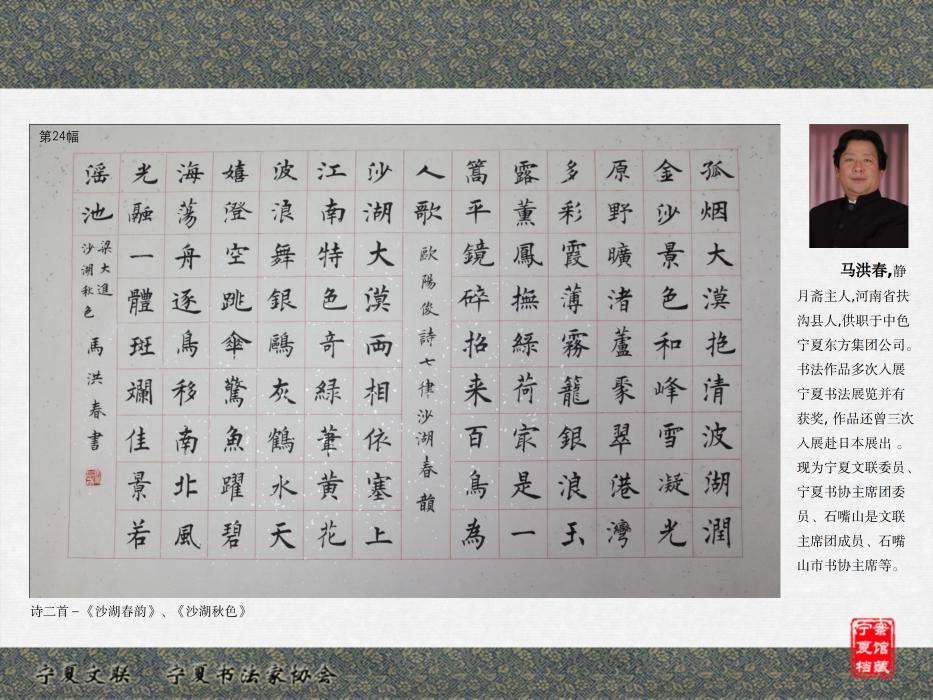 第24幅
孤烟大漠抱清波湖潤
金沙景色和峰雪凝光
原野曠渚蘆聚翠港灣
多彩霞薄霧籠銀浪玉
露薰鳳撫綠荷宗是一
篙平鏡碎招来百鳥為
人歌
歐陽俊詩七律沙湖春韻
沙湖大漠両相依塞上
江南特色奇緑葦黄花
波浪舞銀鷗灰鶴水天
嬉澄空跳傘驚魚躍碧
海蕩舟逐鳥移南北風
光融一體斑斕佳景若
滛池
梁大進
沙湖秋色
馬洪春書
诗二首－《沙湖春韵》、《沙湖秋色》
马洪春,静
月斋主人,河南省扶
沟县人,供职于中色
宁夏东方集团公司。
书法作品多次入展
宁夏书法展览并有
获奖, 作品还曾三次
入展赴日本展出 。
现为宁夏文联委员、
宁夏书协主席团委
员、石嘴山是文联
主席团成员、石嘴
山市书协主席等。
宁夏文联 宁夏书法家协会
宁夏档案馆馆藏